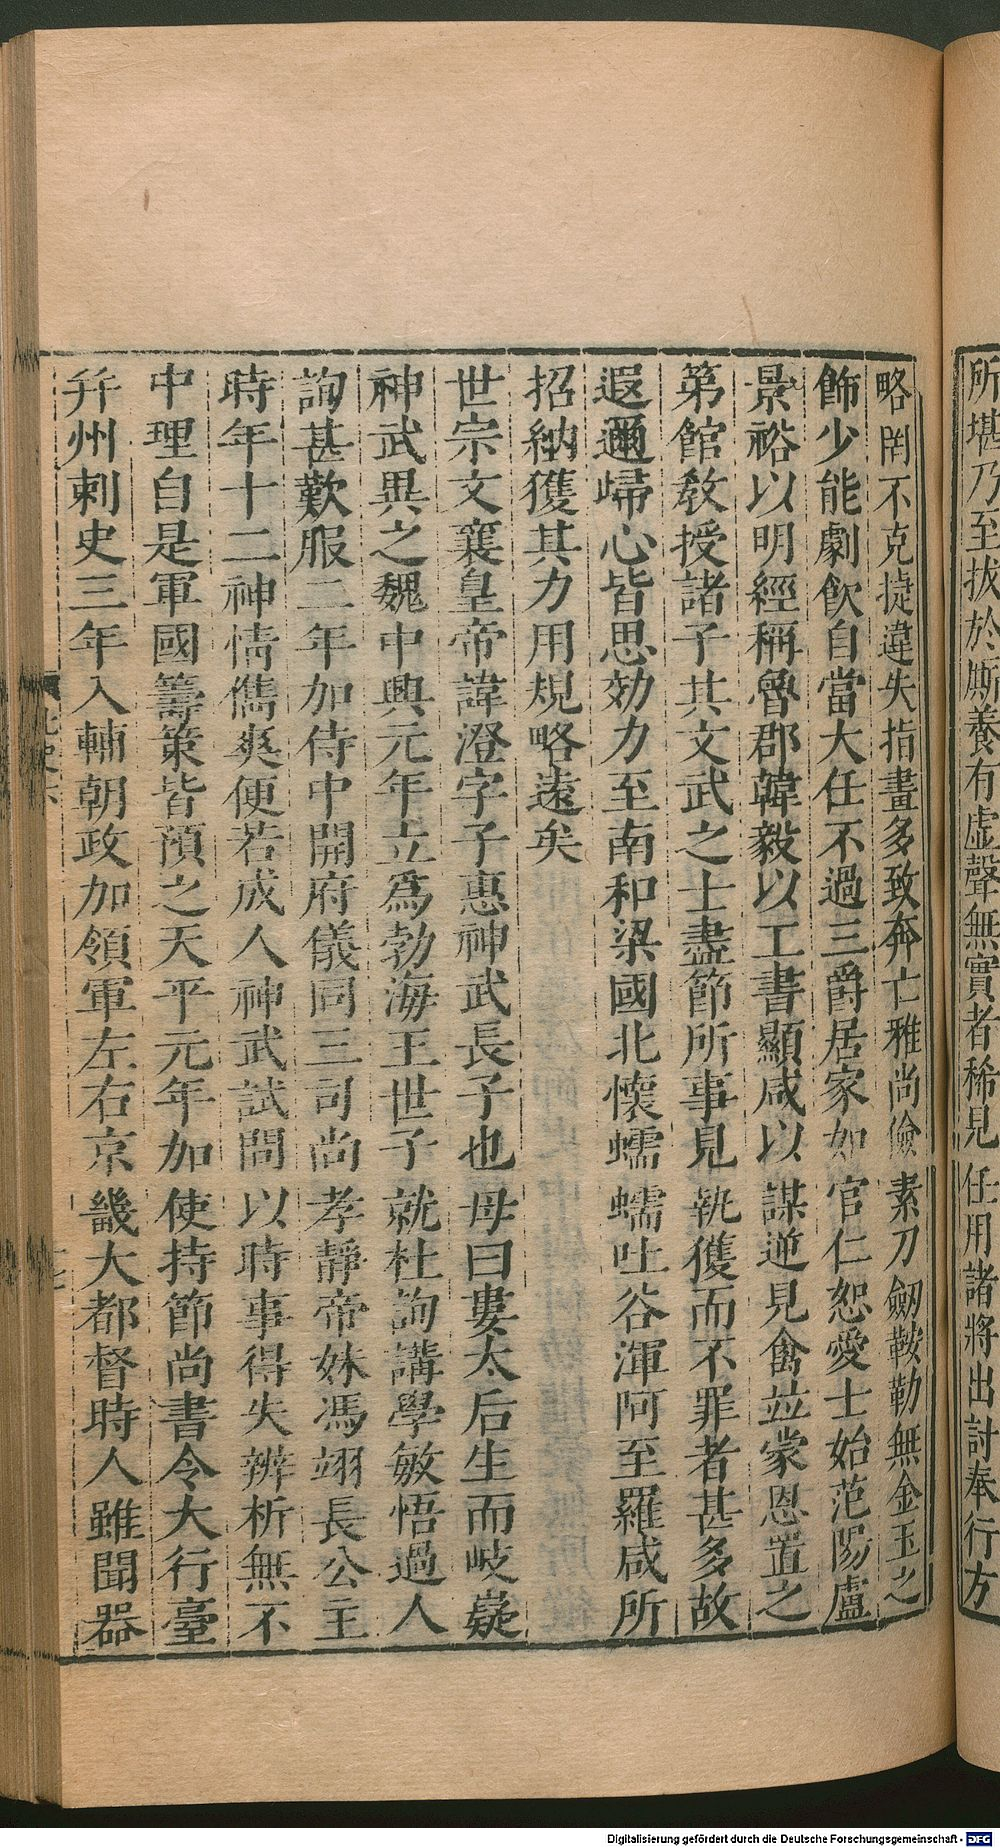 所堪乃至拔於厮養有虚聲無實者稀見任用諸將出討奉行方
略罔不克捷違失指畫多致奔亡雅尚儉素刀劒鞍勒無金玉之
飾少能劇飲自當大任不過三爵居家如官仁恕愛士始范陽盧
景裕以明經稱魯郡韓毅以工書顯咸以謀逆見禽並蒙恩置之
第館教授諸子其文武之士盡節所事見執獲而不罪者甚多故
遐邇歸心皆思効力至南和梁國北懷蠕蠕吐谷渾阿至羅咸所
招納獲其力用規略遠矣
世宗文襄皇帝諱澄字子惠神武長子也母曰婁太后生而岐嶷
神武異之魏中興元年立爲勃海王世子就杜詢講學敏悟過人
詢甚歎服二年加侍中開府儀同三司尚孝靜帝妹馮翊長公主
時年十二神情儁爽便若成人神武試問以時事得失辨析無不
中理自是軍國籌策皆預之天平元年加使持節尚書令大行臺
并州刺史三年入輔朝政加領軍左右京畿大都督時人雖聞器
Digitalisierung gefördert durch die Deutsche Forschungsgemeinschaft - DFG